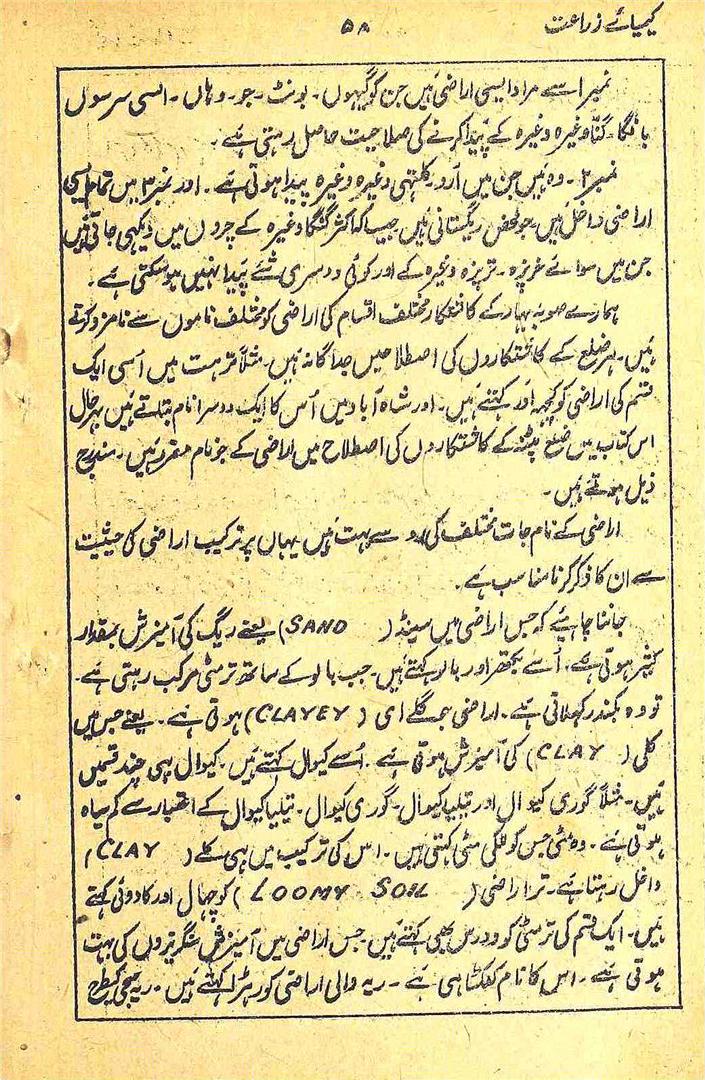 کیمیائے زراعت
۵۸
نمبر۱ سے مراد ایسی اراضی ہیں جن کو گیہوں۔ بونٹ۔ جو۔ وہاں۔ السی سرسوں
بانگا۔ گنّا وغیرہ وغیرہ کے پَیدا کرنے کی صلاحیت حاصل رہتی ہَے۔
نمبر۲۔ وہ ہَیں جن میں اُرد۔ کلتہی وغیرہ وغیرہ پیدا ہوتی ہَے۔ اور نمبر۳ میں تمام ایسی
اراضی داخل ہَیں۔ جو محض ریگستانی ہَیں۔ جیسا کہ اکثر گنگا وغیرہ کے چروں میں دیکہی جاتی ہَیں
جن میں سوائے خربزہ۔ تربزہ وغیرہ کے اور کوئی دوسری شَے پَیدا نہیں ہو سکتی ہَے۔
ہمارے صوبہ بہار کے کاشتکار مختلف اقسام کی اراضی کو مختلف ناموں سے نامزد کرتے
ہَیں۔ ہر ضلع کے کاشتکاروں کی اصطلاحیں جداگانہ ہَیں۔ مثلاً ترہت میں اُسی ایک
قسم کی اراضی کو کچہہ اَور کہتے ہَیں۔ اور شاہ آباد میں اُس کا ایک دوسرا نام بتاتے ہَیں بہرحال
اس کتاب میں ضلع پٹنہ کے کاشتکاروں کی اصطلاح میں اراضی کے جو نام مقرر ہَیں۔ مندرجہ
ذیل ہوتے ہَیں۔
اراضی کے نام جات مختلف کی رو سے بہت ہَیں یہاں پر ترکیب اراضی کی حیثیت
سے ان کا ذکر کرنا مناسب ہَے۔
جاننا چاہیئے کہ جس اراضی میں سینڈ (SAND) یعنے ریگ کی آمیزش بمقدار
کثیر ہوتی ہَے۔ اُسے بجھتر اور بالو کہتے ہَیں۔ جب بالو کے ساتھ نرمٹی مرکب رہتی ہَے۔
تو وہ کہلاتی ہَے۔ اراضی جو کلے ای (CLAYEY) ہوتی ہَے۔ یعنے جس میں
کلی (CLAY) کی آمیزش ہوتی ہَے۔ اُسے کیوال کہتے ہَیں۔ کیوال کی چند قسمیں
ہَیں۔ مثلاً گوری کیوال اور تیلیا کیوال۔ گوری کیوال۔ تیلیا کیوال کے اعتبار سے کم سیاہ
ہوتی ہَے۔ وہ مٹی جس کو مٹی کہتی ہَیں۔ اس کی ترکیب میں بھی کلے (CLAY)
داخل رہتا ہَے۔ تر اراضی (LOOMY SOIL) کو چہال اور کادوئی کہتے
ہَیں۔ ایک قسم کی نرمٹی کو دورس بھی کہتے ہَیں۔ جس اراضی میں آمیزش سنگریزوں کی بہت
ہوتی ہَے۔ اس کا نام ہی ہَے۔ ریہ والی اراضی کو رہڑا کہتے ہَیں۔ ریہ سجّی کی طرح